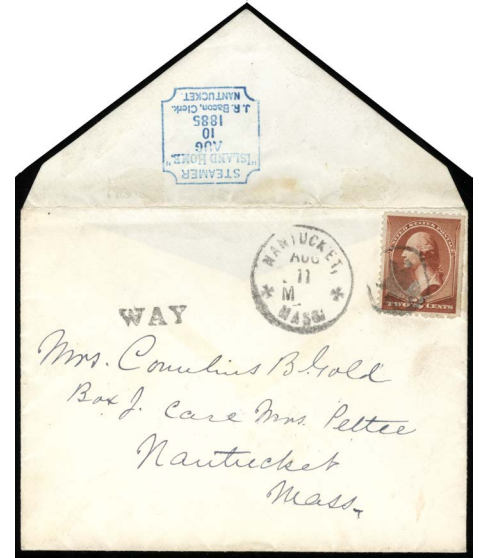 STEAMER
"ISLAND HOME."
AUG
10
1885
J. R. Bacon, Clerk.
NANTUCKET.
NANTUCKET,
AUG
11
M
MASS.
TWO CENTS
WAY
Mrs. Cornelius B. Gold
Box J. Care Mrs. Peltee
Nantucket
Mass.